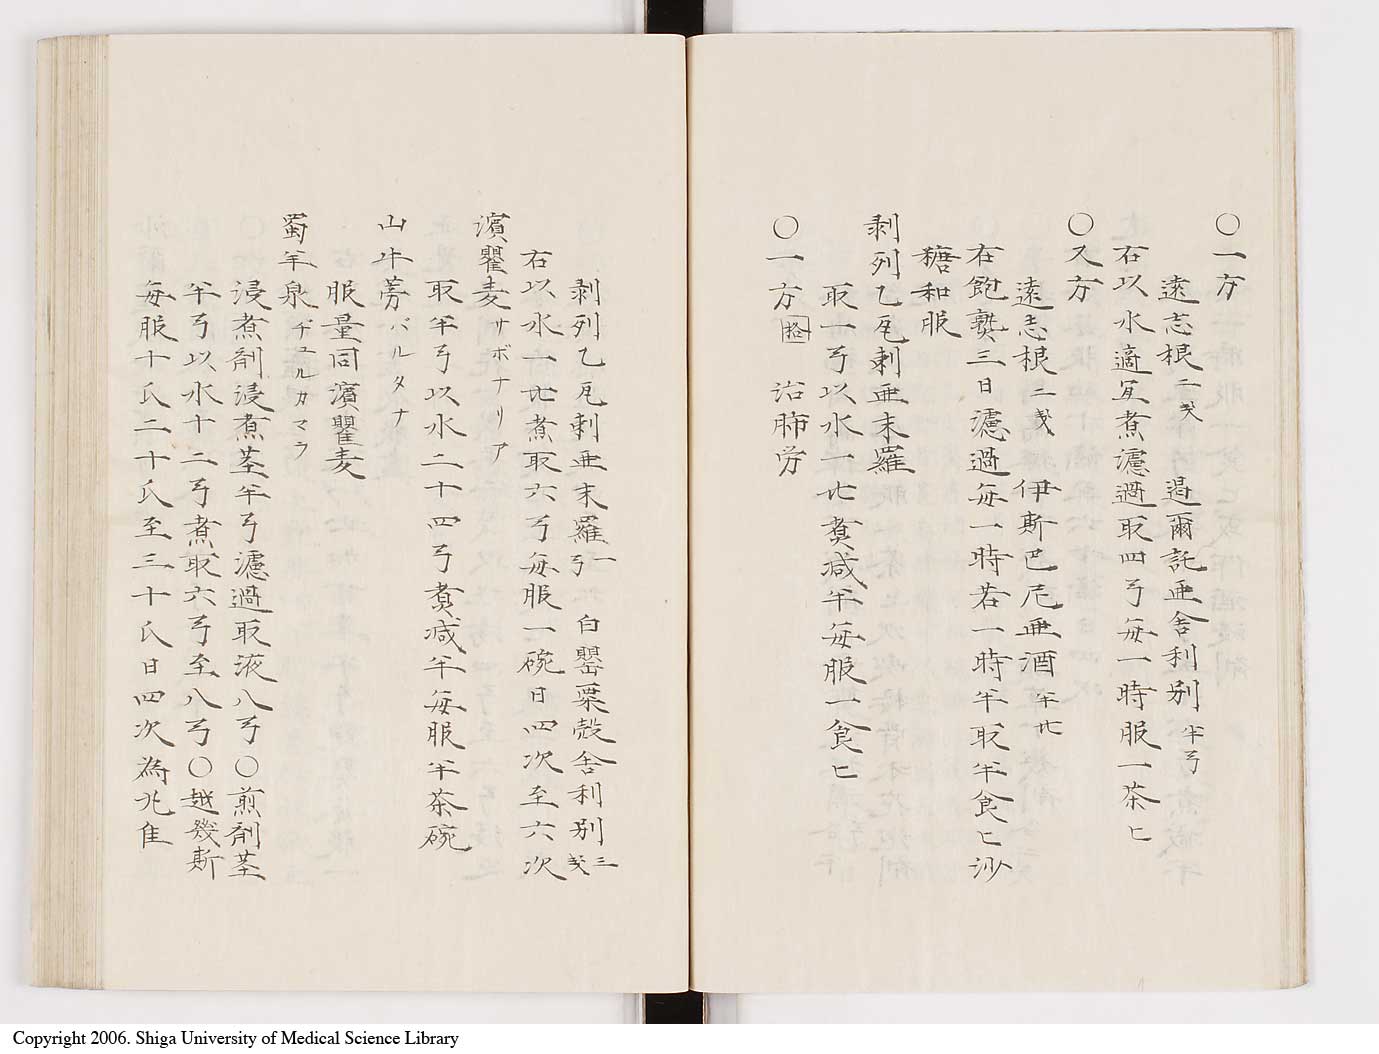 ○一方
遠志根二戔 過爾託亜舎利別半弓
右以水適宜煮濾過取四弓毎一時服一茶匕
○又方
遠志根二戔 伊斯巴尼亜酒半卄
右飽熨三日濾過毎一時若一時半取半食匕沙
糖和服
○一方 拾 治肺労
剥列乙尾剌亜末羅
取一弓以水一卄煑减半毎服一食匕
剥列乙尾剌亜末羅一弓 白罌粟殻舎利別三戔
右以水一卄煮取六弓毎服一碗日四次至六次
濱瞿麦サボナリア
取半弓以水二十四弓煑减半毎服半茶碗
山牛蒡バルタナ
服量同濱瞿麦
蜀羊泉ヂュルカマラ
浸煮剤浸煮茎半弓濾過取液八弓○煎剤茎
半弓以水十二弓煮取六弓至八弓○越幾斯
毎服十氏二十氏至三十氏日四次為兆隹
Copyright 2006. Shiga University of Medical Science Library